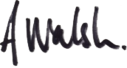 A Walsh.